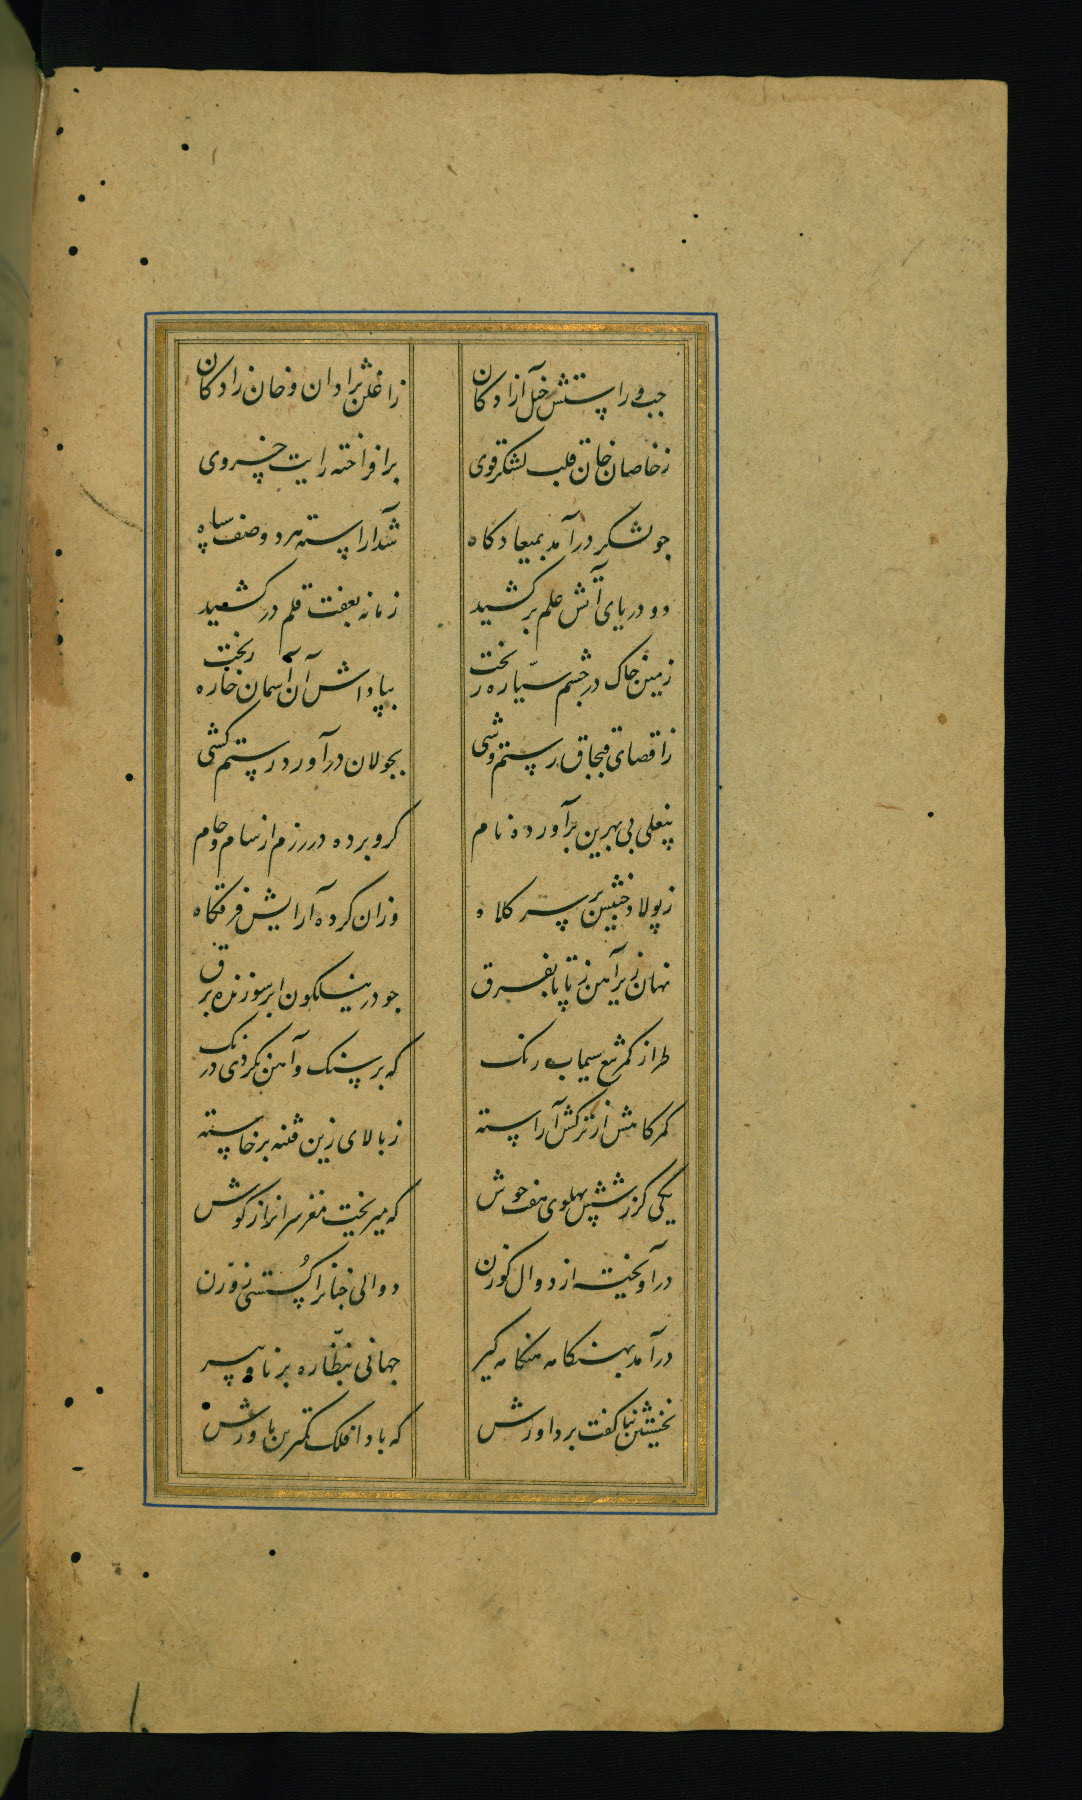 جب و راستش خیل آزادکان زاغلن نژادان و خان زادکان
زخاصان خان قلب لشکر قوی برافراخته رایت خسروی
جو لشکر درآمد بمیعادکاه شد آراسته هر دو صف سپاه
دو دریای آتش علم برکشید زمانه بعفت قلم درکشید
زمین خاک در چشم سیاره ریخت بپاداش آن آسمان خاره ریخت
زاقصای قبجاق رستم وشی بجولان درآورد رستم کشی
بنعلی بی بهرین برآورده نام کرو برده در رزم از سام و جام
زپولاد جنین بر سر کلاه وزان کرده آرایش فرقکاه
نهان زیر آهن زپا تا بفرق جو در نیلکون ابر سوزنده برق
طراز کمر تیغ سیماب رنک که بر سنک و آهن نکردی درنک
کمرکاهش از ترکش آراسته زبالای زین فتنه برخاسته
یکی کرز شش پهلوی هفت جوش که میریخت مغز سرانرا ز کوش
درآویخته از دوال کوزن دوالی جنانرا کستی زوزن
درآمد بهنکامه هنکامه کیر جهانی بنظاره برنا و پیر
نخستین ثنا کفت بر داورش که باد از فلک کمترین یاورش